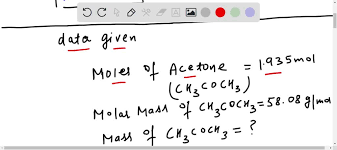 data given
Moles of Acetone = 1.935 mol
(CH3COCH3)
Molar Mass of CH3COCH3 = 58.08 g/mol
Mass of CH3COCH3 = ?